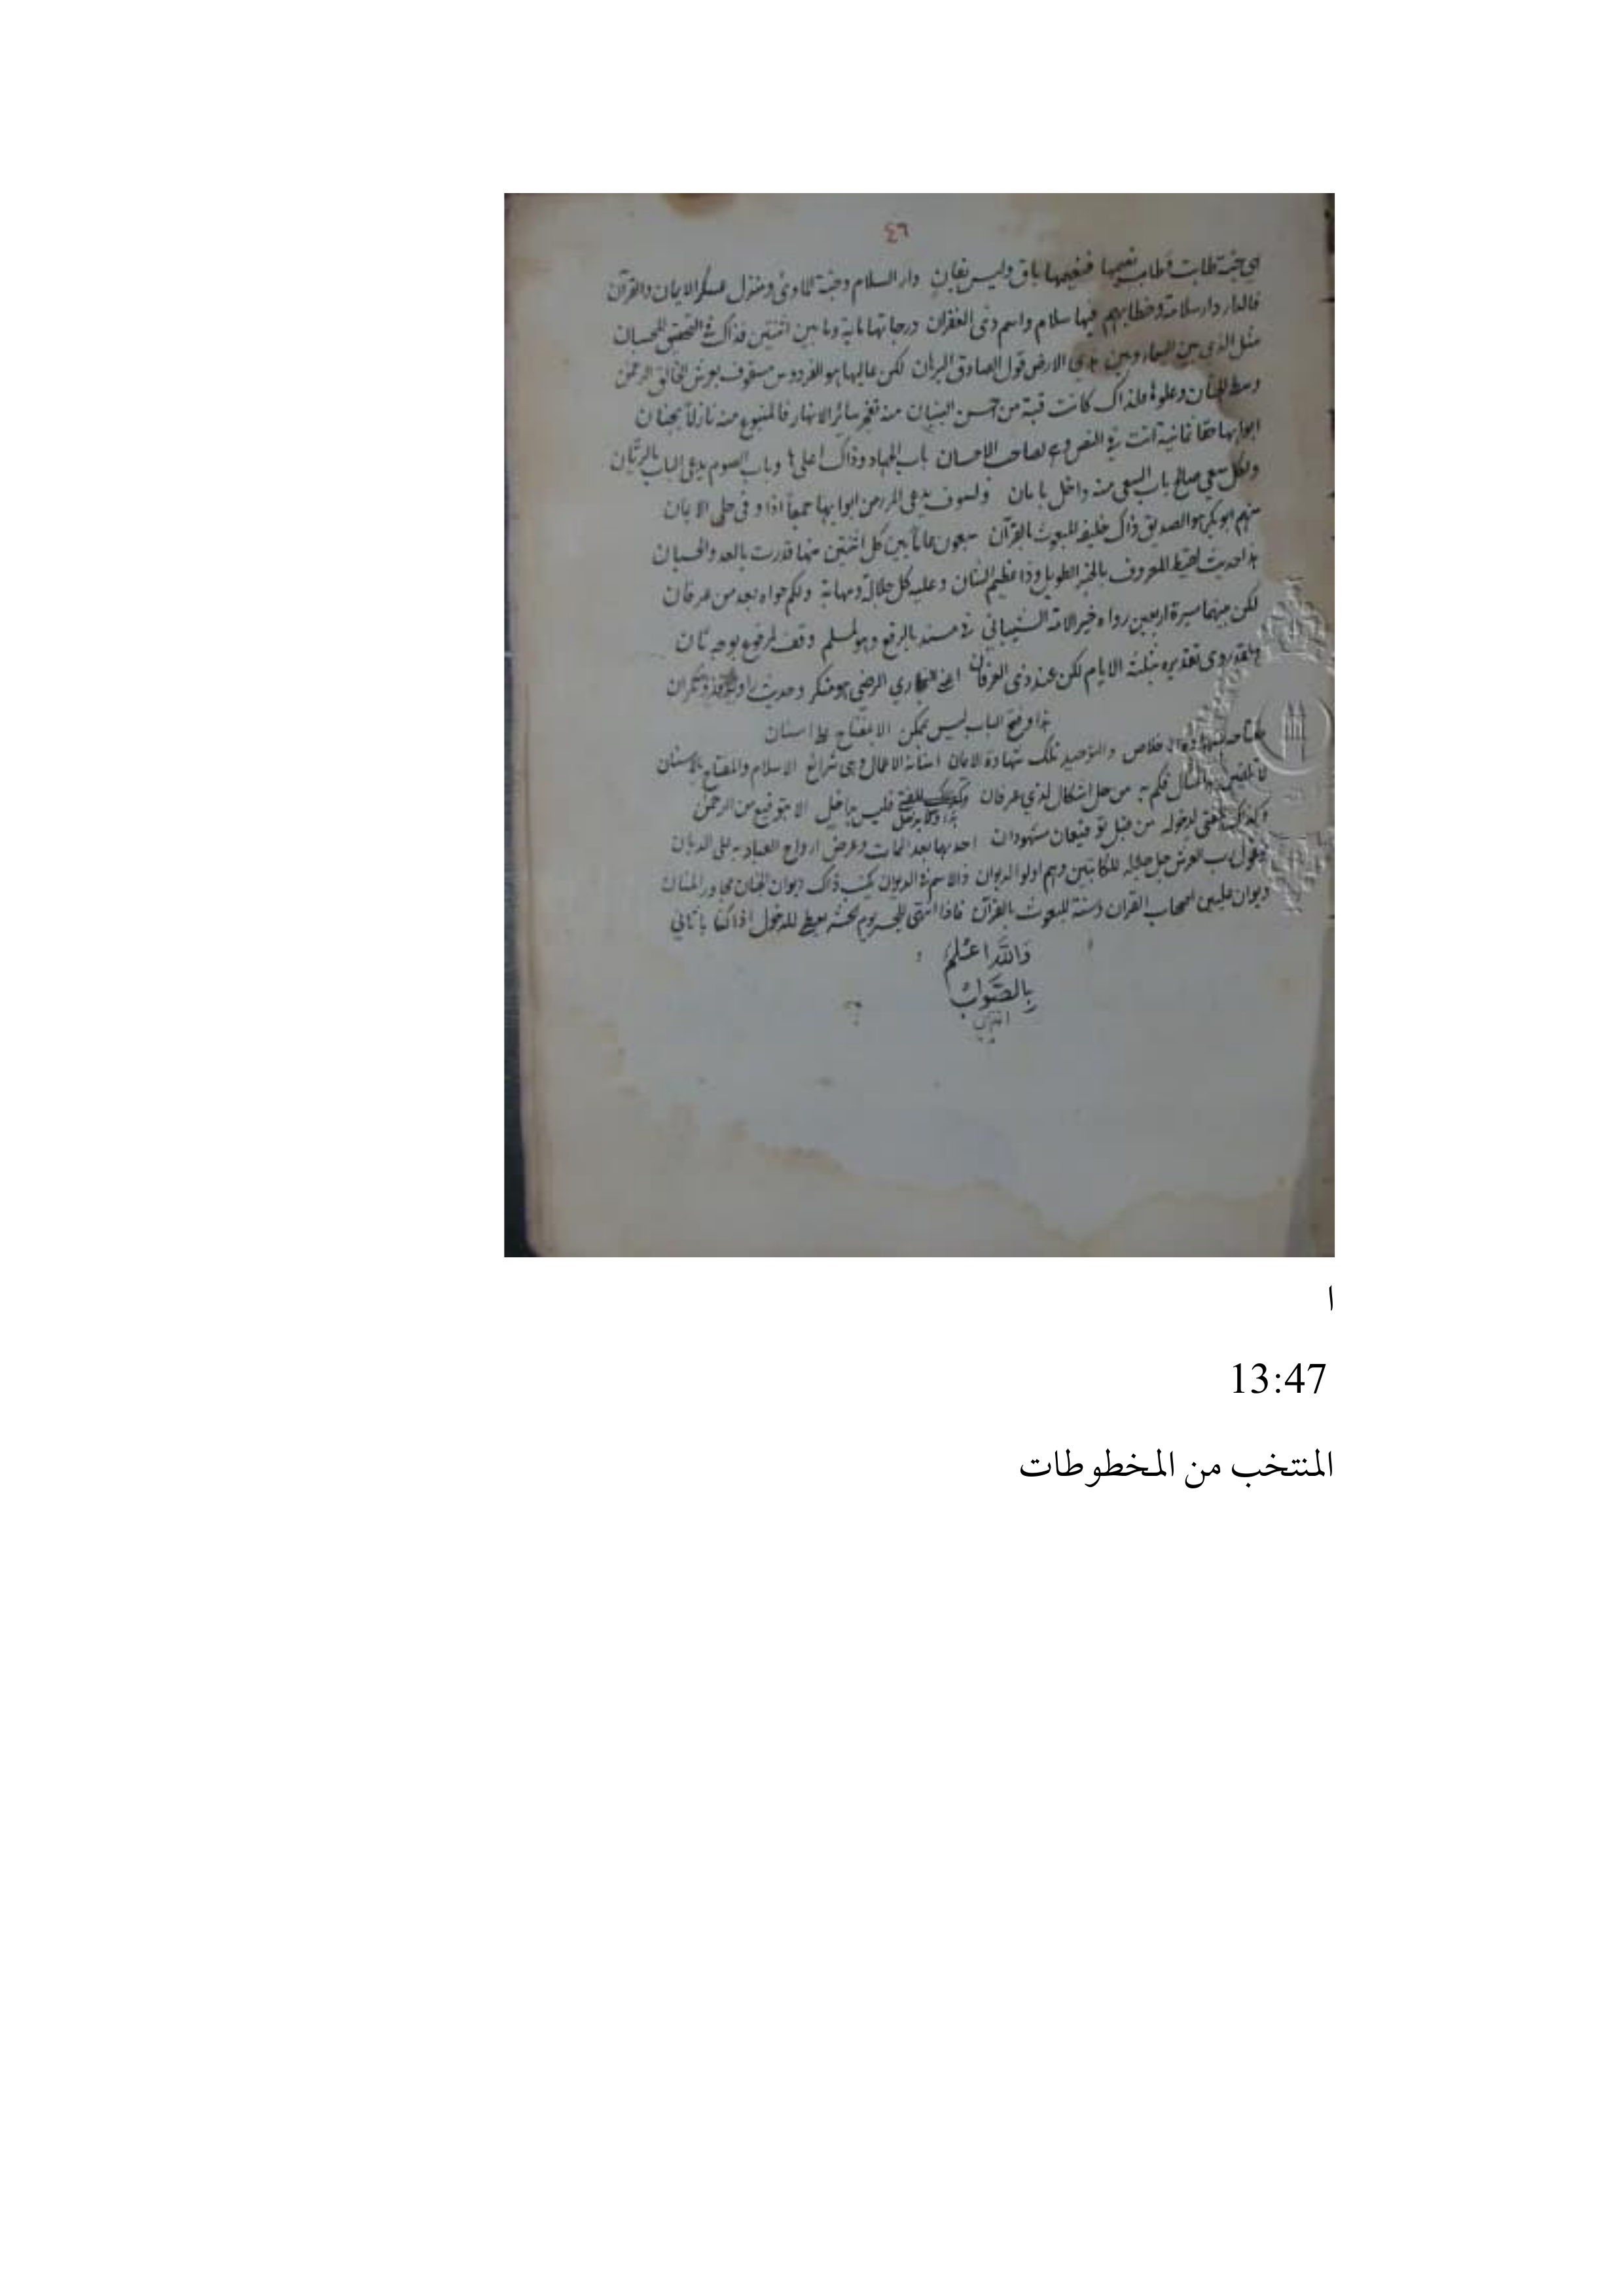 ٤٦
هي جنة طابت وطاب نعيمها فنعيمها باق وليس بفان دار السلام وجنة الماوى ومنزل عسكر الايمان والقرآن
فالدار دار سلامة وخطابهم فيها سلام واسم ذى الغفران درجاتها ماية وما بين اثنتين فذاك في التحقيق للحسبان
مثل الذي بين السماء وبين هذي الارض قول الصادق البرهان لكن عاليها هو الفردوس مسقوف بعرش الخالق الرحمن
وسط الجنان وعلوها فلذاك كانت قبة من احسن البنيان منه تفجر سائر الانهار فالمنبوع منه نازلا بجنان
ابوابها حقا ثمانية اتت في النص وهي لصاحب الاحسان باب الجهاد وذاك اعلاها وباب الصوم يدعى الباب بالريان
ولكل سعي صالح باب السعي منه داخل بامان ولسوف يدعى المرء من ابوابها جمعا اذا وفى حلى الايمان
منهم ابو بكر هو الصديق ذاك خليفة المبعوث بالقرآن سبعون عاما بين كل اثنتين منها قدرت بالعد والحسبان
هذا حديث لقيط المعروف بالخبر الطويل وذا عظيم الشان وعليه كل جلالة ومهابة ولكم حواه بعد من عرفان
لكن بينهما مسيرة اربعين رواه خير الامة الشيباني في مسند بالرفع وهو لمسلم وقف لمرفوع بوجه ثان
ولقد روى تقديره بثلثة الايام لكن عند ذى العرفان اعني البخاري الرضي هو منكر وحديث راويه ذو نكران
هذا وفتح الباب ليس بممكن الا بمفتاح على اسنان
مفتاحه بشهادة الاخلاص والتوحيد تلك شهادة الايمان اسنانه الاعمال وهي شرائع الاسلام والمفتاح بالاسنان
لا تلغين هذا المثال فكم به من حل اشكال لذي عرفان هذا ومن يدخل فليس بداخل الا بتوقيع من الرحمن
وكذاك للفتى لدخوله من قبل توقيعان مشهودان احديهما بعد الممات وعرض ارواح العباد به على الديان
فيقول رب العرش جل جلاله للكاتبين وهم اولو الديوان ذا الاسم في الديوان يكتب ذاك ديوان الجنان مجاور المنان
ديوان عليين اصحاب القران وسنة المبعوث بالقرآن فاذا انتهى للجسر يوم الحشر يعطى للدخول اذا كتابا ثاني
والله اعلم
بالصواب
ا
13:47
المنتخب من المخطوطات